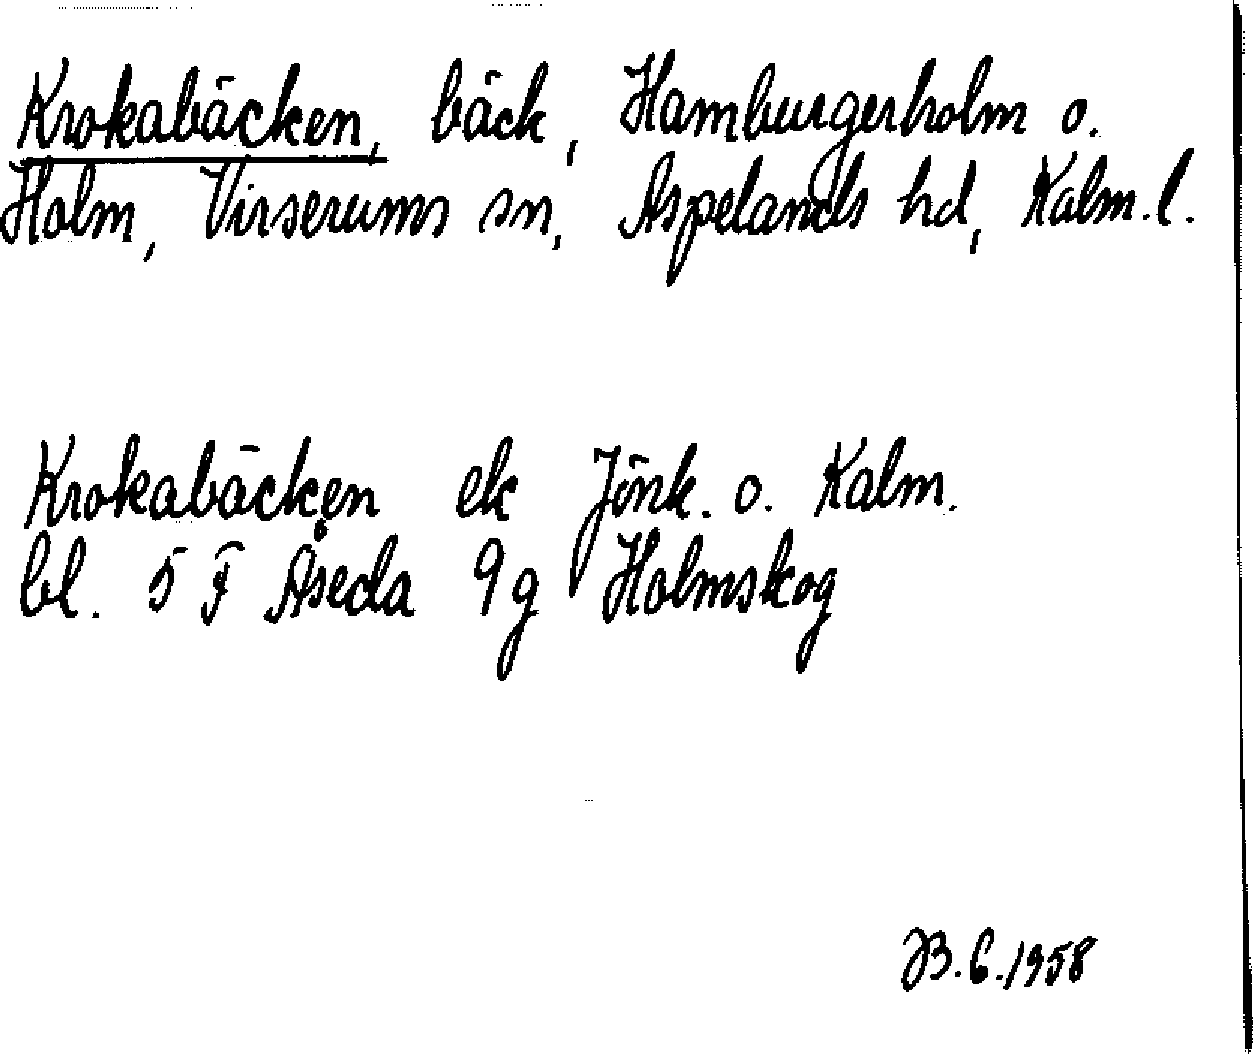 Krokabäcken, bäck, Hamburgerholm o.
Holm, Virserums sn, Aspelands hd, Kalm. l.
Krokabäcken ek Jönk. o. Kalm.
bl. 5 F Åseda 9g Holmskog
B. G. 1958